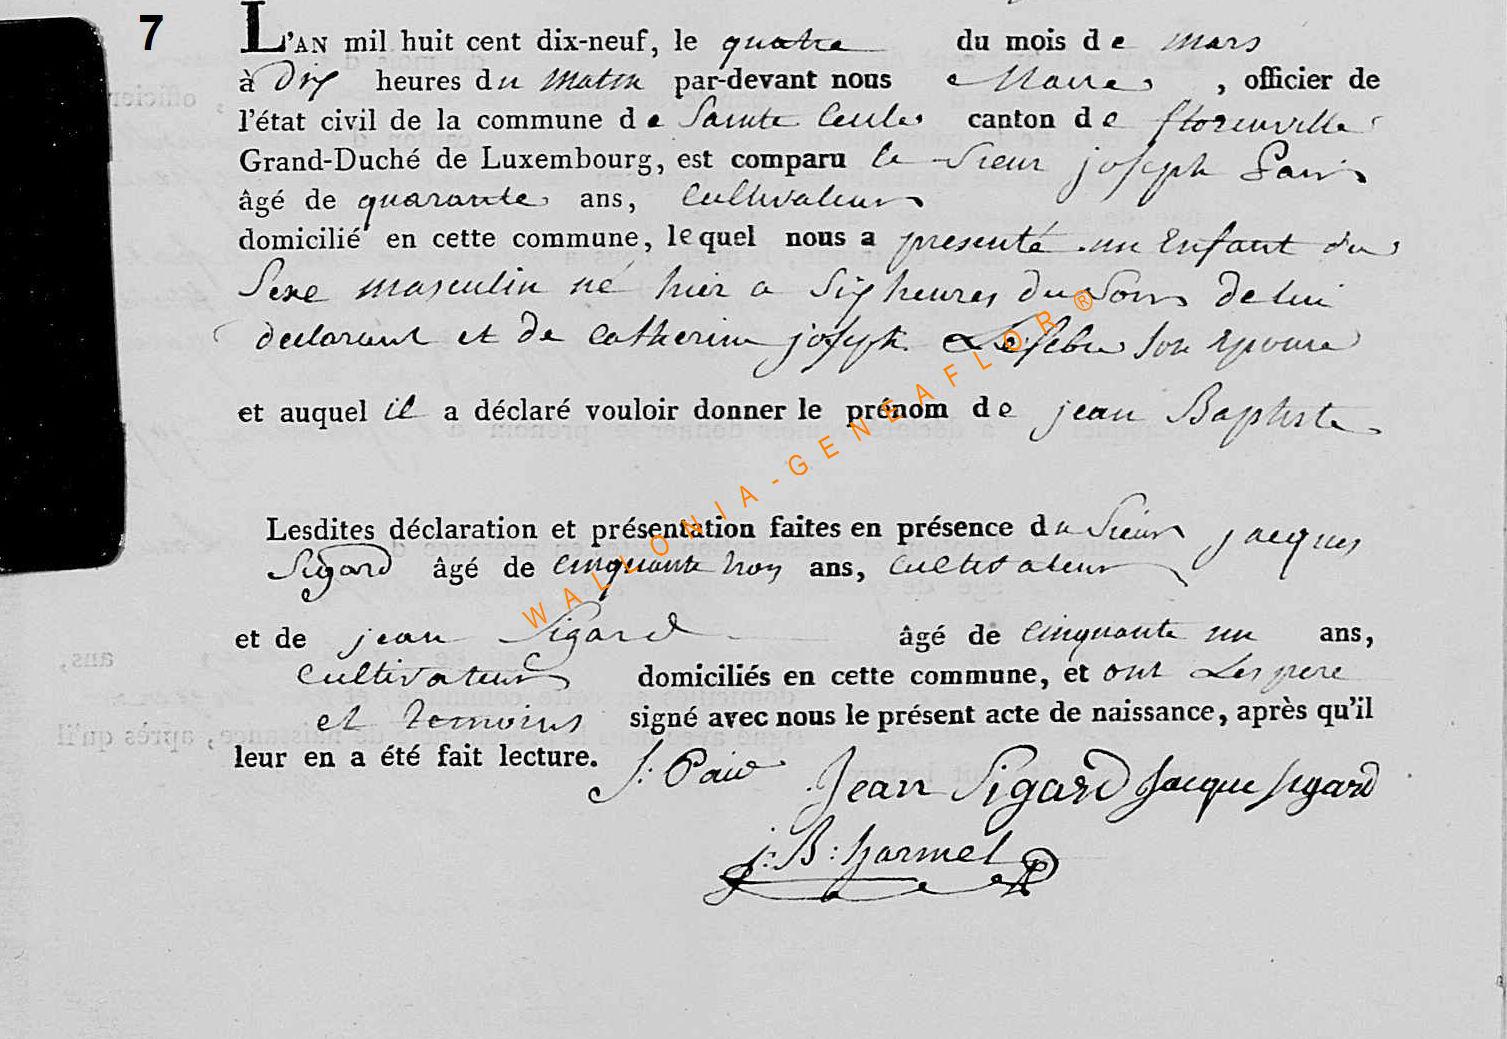 7
L'AN mil huit cent dix-neuf, le quatre du mois de mars
à Dix heures du matin par-devant nous Maire, officier de
l'état civil de la commune de Sainte Cecile canton de florenville
Grand-Duché de Luxembourg, est comparu le Sieur joseph
âgé de quarante ans, Cultivateur
domicilié en cette commune, lequel nous a presenté un Enfant du
Sexe masculin né hier a Six heures du Soir de lui
declarant et de Catherine joseph Lefebre Son Epouse
et auquel il a déclaré vouloir donner le prénom de jean Baptiste
Lesdites déclaration et présentation faites en présence du Sieur jacques
Sigard âgé de Cinquante troy ans, Cultivateur
et de jean Sigard âgé de Cinquante un ans,
Cultivateur domiciliés en cette commune, et ont Les pere
et temoins signé avec nous le présent acte de naissance, après qu'il
leur en a été fait lecture. J:
Jean Sigard Jacque Sigard
j:B: harmel
WALLONIA-GENEAFLOR®